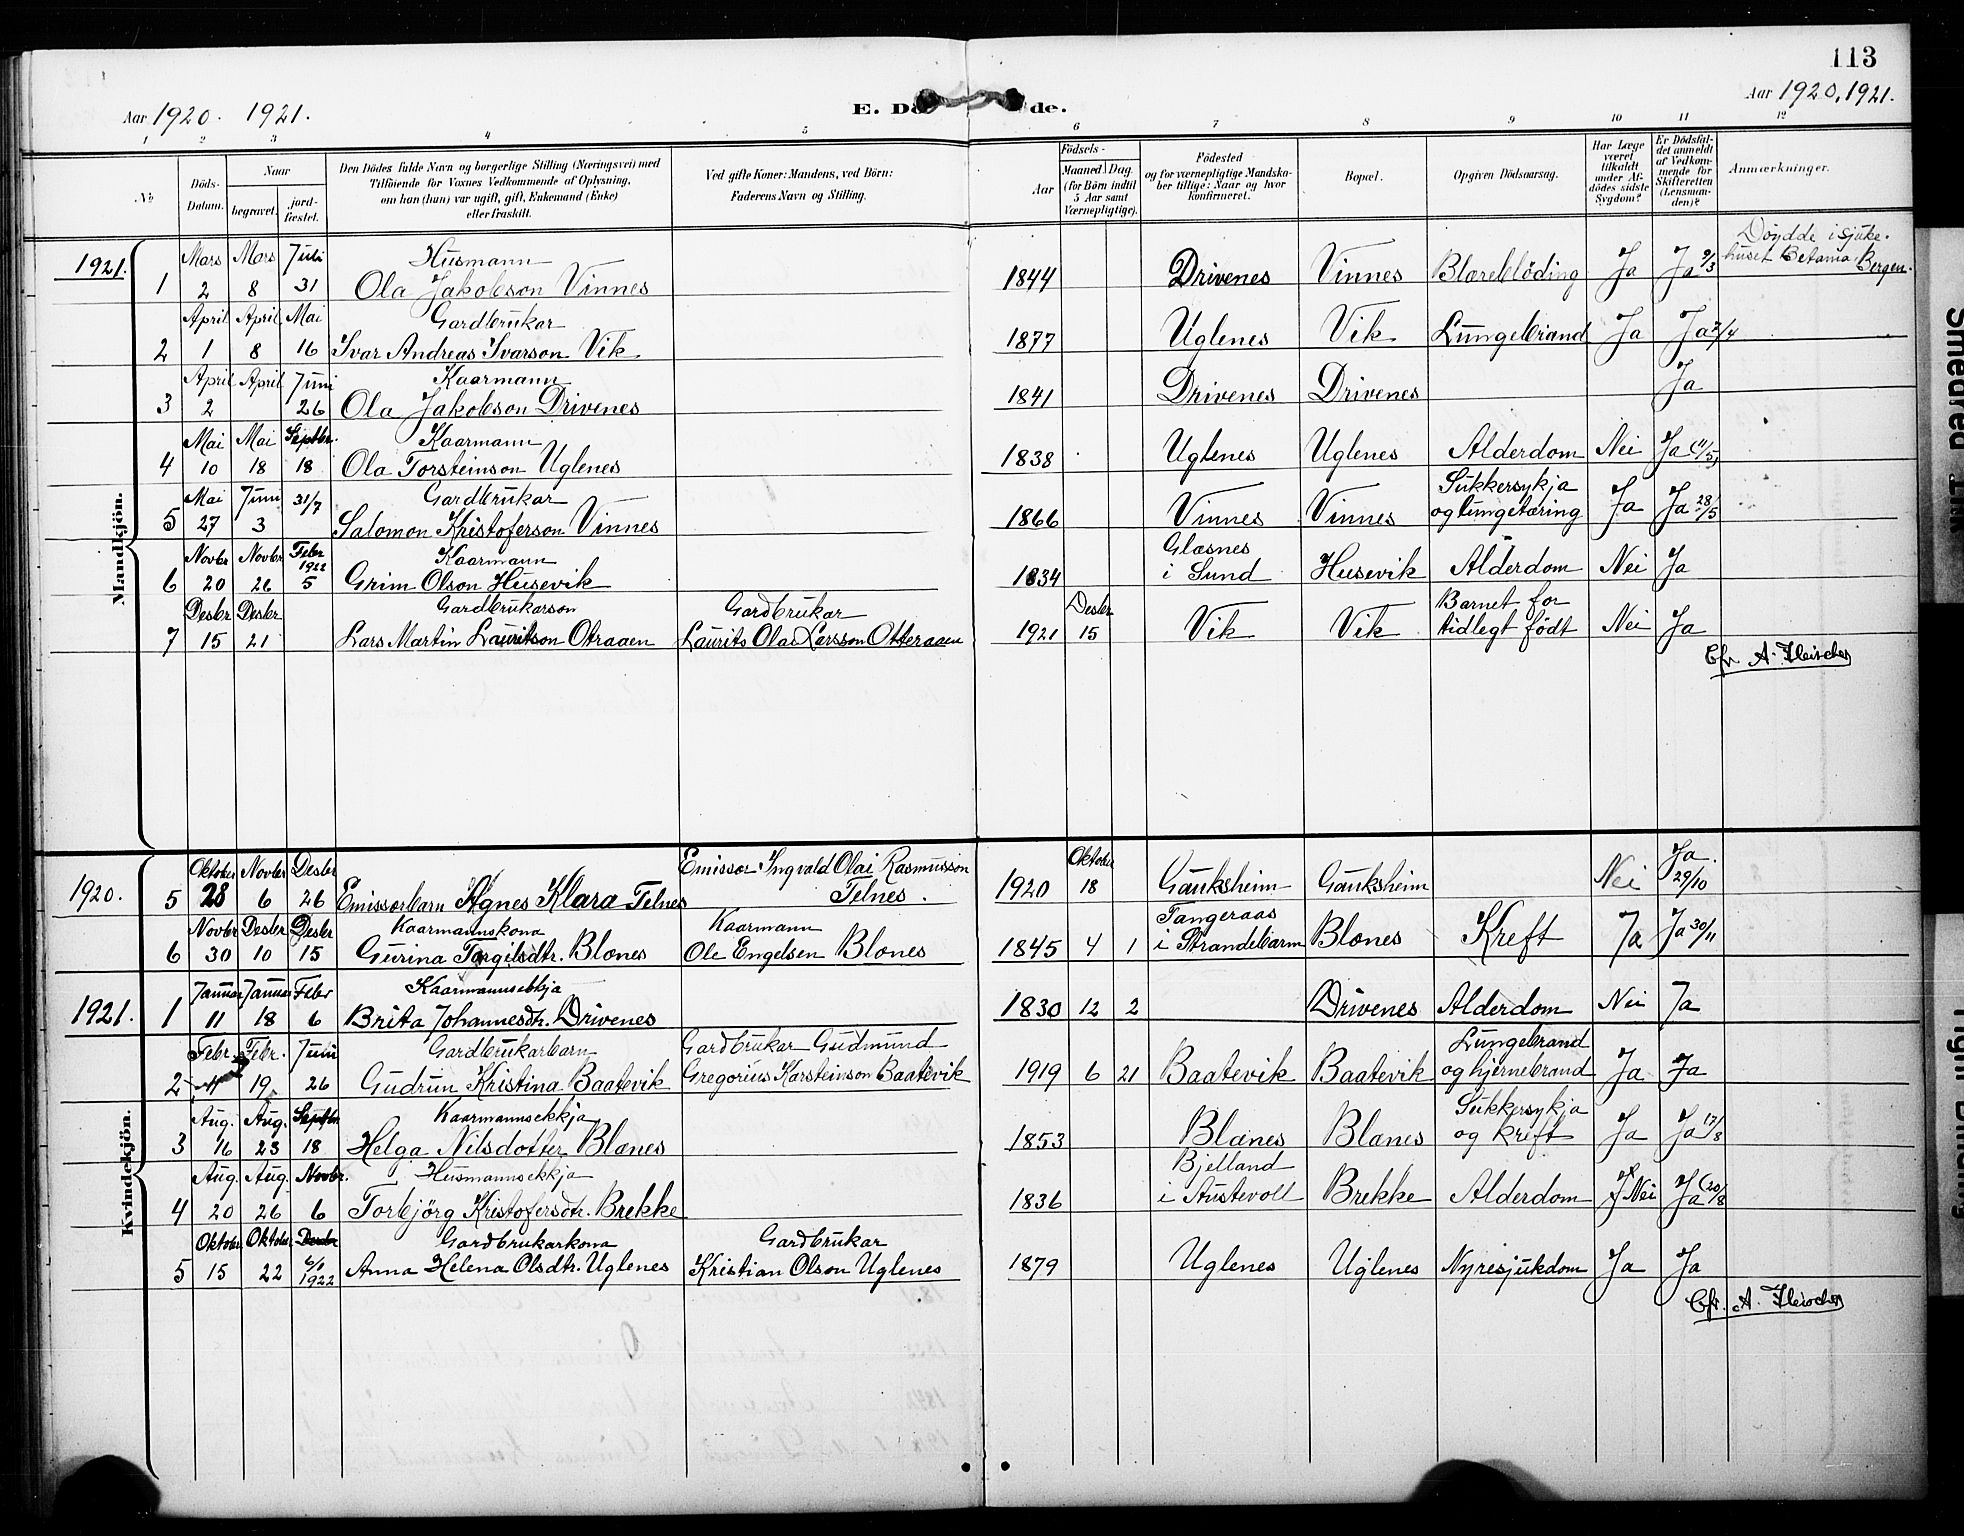 113
Aar 1920. 1921.
E. Dö de.
Aar 1920, 1921.
1 2 3 4 5 6 7 8 9 10 11 12
№
Döds-Datum.
Naar
begravet.
jord-fæstet.
Den Dödes fulde Navn og borgerlige Stilling (Næringsvei) med
Tilföiende for Voxnes Vedkommende af Oplysning,
om han (hun) var ugift, gift, Enkemand (Enke)
eller fraskilt.
Ved gifte Koner: Mandens, ved Börn:
Faderens Navn og Stilling.
Födsels-
Aar
Maaned. Dag.
(for Börn indtil
5 Aar samt
Værnepligtige).
Födested
og for værnepligtige Mandska-
ber tillige: Naar og hvor
konfirmeret.
Bopæl.
Opgiven Dödsaarsag.
Har Læge
været
tilkaldt
under Af-
dödes sidste
Sygdom?
Er Dödsfal-
det anmeldt
af Vedkom-
mende for
Skifteretten
(Lensman-
den)?
Anmærkninger.
Mandkjön.
1921. 1 Mars 2 Mars 8 Juli 31 Husmann
Ola Jakobson Vinnes 1844 Drivenes Vinnes Blæreblöding Ja Ja 9/3 Döydde i sjuke-
huset Betania, Bergen.
2 April 1 April 8 Mai 16 Gardbrukar
Ivar Andreas Ivarson Vik 1877 Uglenes Vik Lungebrand Ja Ja 2/4
3 April 2 April Juni 26 Kaarmann
Ola Jakobson Drivenes 1841 Drivenes Drivenes Ja
4 Mai 10 Mai 18 Septbr. 18 Kaarmann
Ola Torsteinson Uglenes 1838 Uglenes Uglenes Alderdom Nei Ja (11/5)
5 Mai 27 Juni 3 31/7 Gardbrukar
Salomon Kristoferson Vinnes 1866 Vinnes Vinnes Sukkersykja
og lungetæring Ja Ja 28/5
6 Novbr 20 Novbr 26 Febr 1922 5 Kaarmann
Grim Olson Husevik 1834 Glæsnes
i Sund Husevik Alderdom Nei Ja
7 Desbr 15 Desbr 21 Gardbrukarson
Lars Martin Lauritson Otraaen Gardbrukar
Laurits Olai Larsson Otteraaen 1921 Desbr 15 Vik Vik Barnet for
tidlegt födt Nei Ja
Cfr A. Fleischer
Kvindekjön.
1920. 5 Oktober 28 Novbr 6 Desbr 26 Emissærbarn Agnes Klara Telnes Emissær Ingvald Olai Rasmusson
Telnes. 1920 Oktober 18 Gauksheim Gauksheim Nei Ja. 29/10
6 Novbr 30 Desbr 10 Desbr 15 Kaarmannskona
Gurina Torgilsdtr. Blænes Kaarmann
Ole Engelsen Blænes 1845 4 1 Tangeraas
i Strandebarm Blænes Kreft Ja Ja 30/11
1921. 1 Januar 11 Januar 18 Febr 6 Kaarmannsekkja
Brita Johannesdtr. Drivenes 1830 12 2 Drivenes Alderdom Nei Ja
2 Febr. Febr. 19 Juni 26 Gardbrukarbarn
Gudrun Kristina Baatevik Gardbrukar Gudmund
Gregorius Karsteinson Baatevik 1919 6 21 Baatevik Baatevik Lungebrand
og hjernebrand Ja Ja
3 Aug. 16 Aug. 23 Septbr 18 Kaarmannsekkja
Helga Nilsdotter Blænes 1853 Blænes Blænes Sukkersykja
og kreft Ja Ja 17/8
4 Aug. 20 Aug. 26 Novbr. 6 Husmannsekkja
Torbjörg Kristofersdtr. Brekke 1836 Bjelland
i Austevoll Brekke Alderdom Nei Ja (20/8
5 Oktober 15 Oktober 22 Desbr 6/1 1922 Gardbrukarkona
Anna Helena Olsdtr. Uglenes Gardbrukar
Kristian Olson Uglenes 1879 Uglenes Uglenes Nyresjukdom Ja Ja
Cfr. A. Fleischer